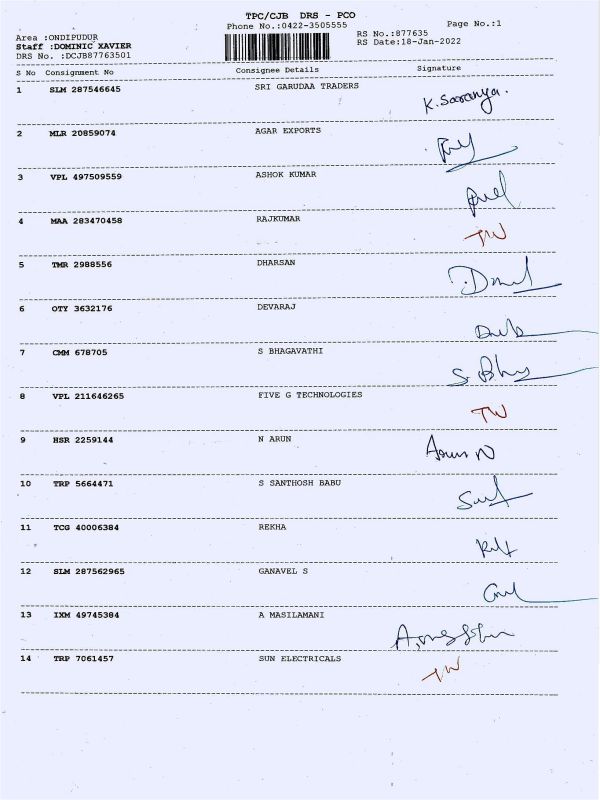 TPC/CJB DRS - PCO
Phone No.:0422-3505555
Page No.:1
Area :ONDIPUDUR
RS No.:877635
Staff :DOMINIC XAVIER
RS Date:18-Jan-2022
DRS No. :DCJB87763501
S No Consignment No Consignee Details Signature
1 SLM 287546645 SRI GARUDAA TRADERS K. Saranya.
2 MLR 20859074 AGAR EXPORTS
3 VPL 497509559 ASHOK KUMAR
4 MAA 283470458 RAJKUMAR TW
5 TMR 2988556 DHARSAN
6 OTY 3632176 DEVARAJ
7 CMM 678705 S BHAGAVATHI
8 VPL 211646265 FIVE G TECHNOLOGIES TW
9 HSR 2259144 N ARUN Arun N
10 TRP 5664471 S SANTHOSH BABU
11 TCG 40006384 REKHA
12 SLM 287562965 GANAVEL S
13 IXM 49745384 A MASILAMANI
14 TRP 7061457 SUN ELECTRICALS TW